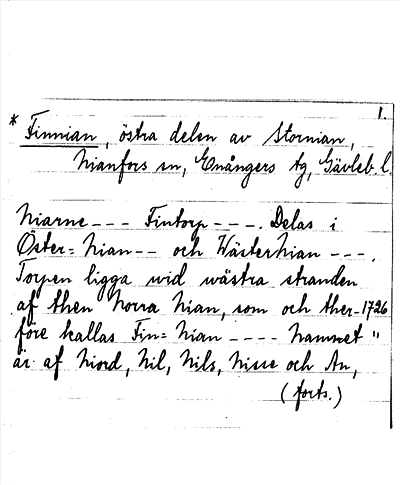 1.
* Finnian, östra delen av Stornian,
Nianfors sn, Enångers tg, Gävleb. l.
Niarne --- Fintorp ---. Delas i
Öster=Nian-- och Wästerhian ---.
Torpen ligga wid wästra stranden
af then Norra Nian, som och ther- 1726
före kallas Fin=Nian ---- Namnet "
är af Niord, Nil, Nils, Nisse och An,
(forts.)